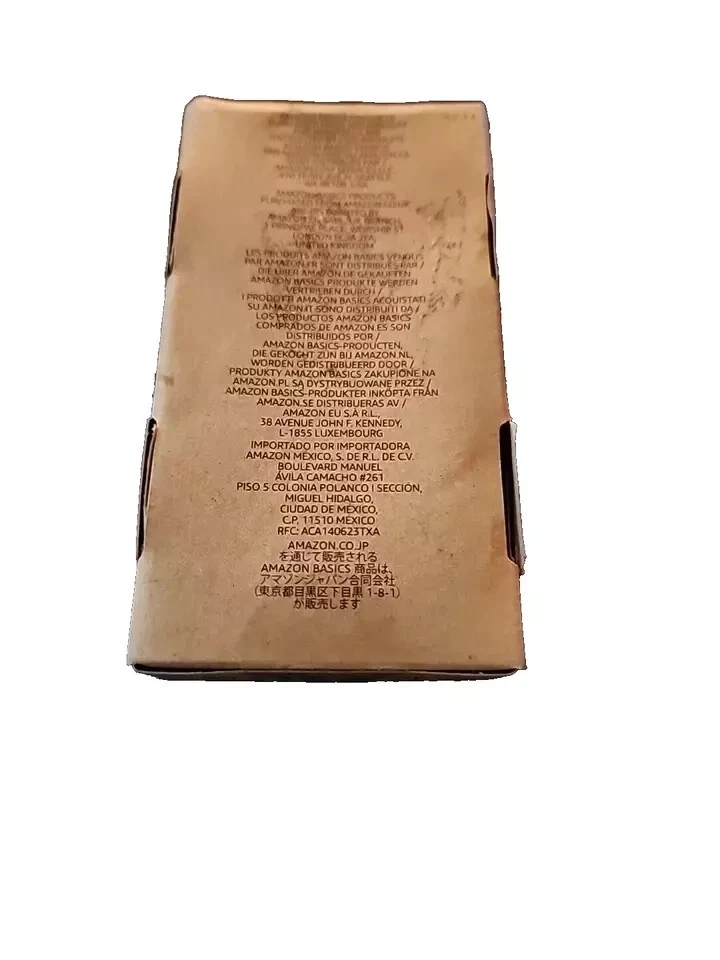 WA 98108, USA
AMAZON BASICS PRODUCTS
PURCHASED FROM AMAZON.CO.UK
DISTRIBUTED BY
AMAZON EU SARL, UK BRANCH,
1 PRINCIPAL PLACE, WORSHIP ST
LONDON EC2A 2FA,
UNITED KINGDOM
LES PRODUITS AMAZON BASICS VENDUS
PAR AMAZON.FR SONT DISTRIBUÉS PAR /
DIE ÜBER AMAZON.DE GEKAUFTEN
AMAZON BASICS PRODUKTE WERDEN
VERTRIEBEN DURCH /
I PRODOTTI AMAZON BASICS ACQUISTATI
SU AMAZON.IT SONO DISTRIBUITI DA /
LOS PRODUCTOS AMAZON BASICS
COMPRADOS DE AMAZON.ES SON
DISTRIBUIDOS POR /
AMAZON BASICS-PRODUCTEN,
DIE GEKOCHT ZIJN BIJ AMAZON.NL,
WORDEN GEDISTRIBUEERD DOOR /
PRODUKTY AMAZON BASICS ZAKUPIONE NA
AMAZON.PL SĄ DYSTRYBUOWANE PRZEZ /
AMAZON BASICS-PRODUKTER INKÖPTA FRÅN
AMAZON.SE DISTRIBUERAS AV /
AMAZON EU S.À R.L.,
38 AVENUE JOHN F. KENNEDY,
L-1855 LUXEMBOURG
IMPORTADO POR IMPORTADORA
AMAZON MÉXICO, S. DE R.L. DE C.V.
BOULEVARD MANUEL
ÁVILA CAMACHO #261
PISO 5 COLONIA POLANCO I SECCIÓN,
MIGUEL HIDALGO,
CIUDAD DE MÉXICO,
C.P. 11510 MÉXICO
RFC: ACA140623TXA
AMAZON.CO.JP
を通じて販売される
AMAZON BASICS 商品は、
アマゾンジャパン合同会社
(東京都目黒区下目黒 1-8-1)
が販売します